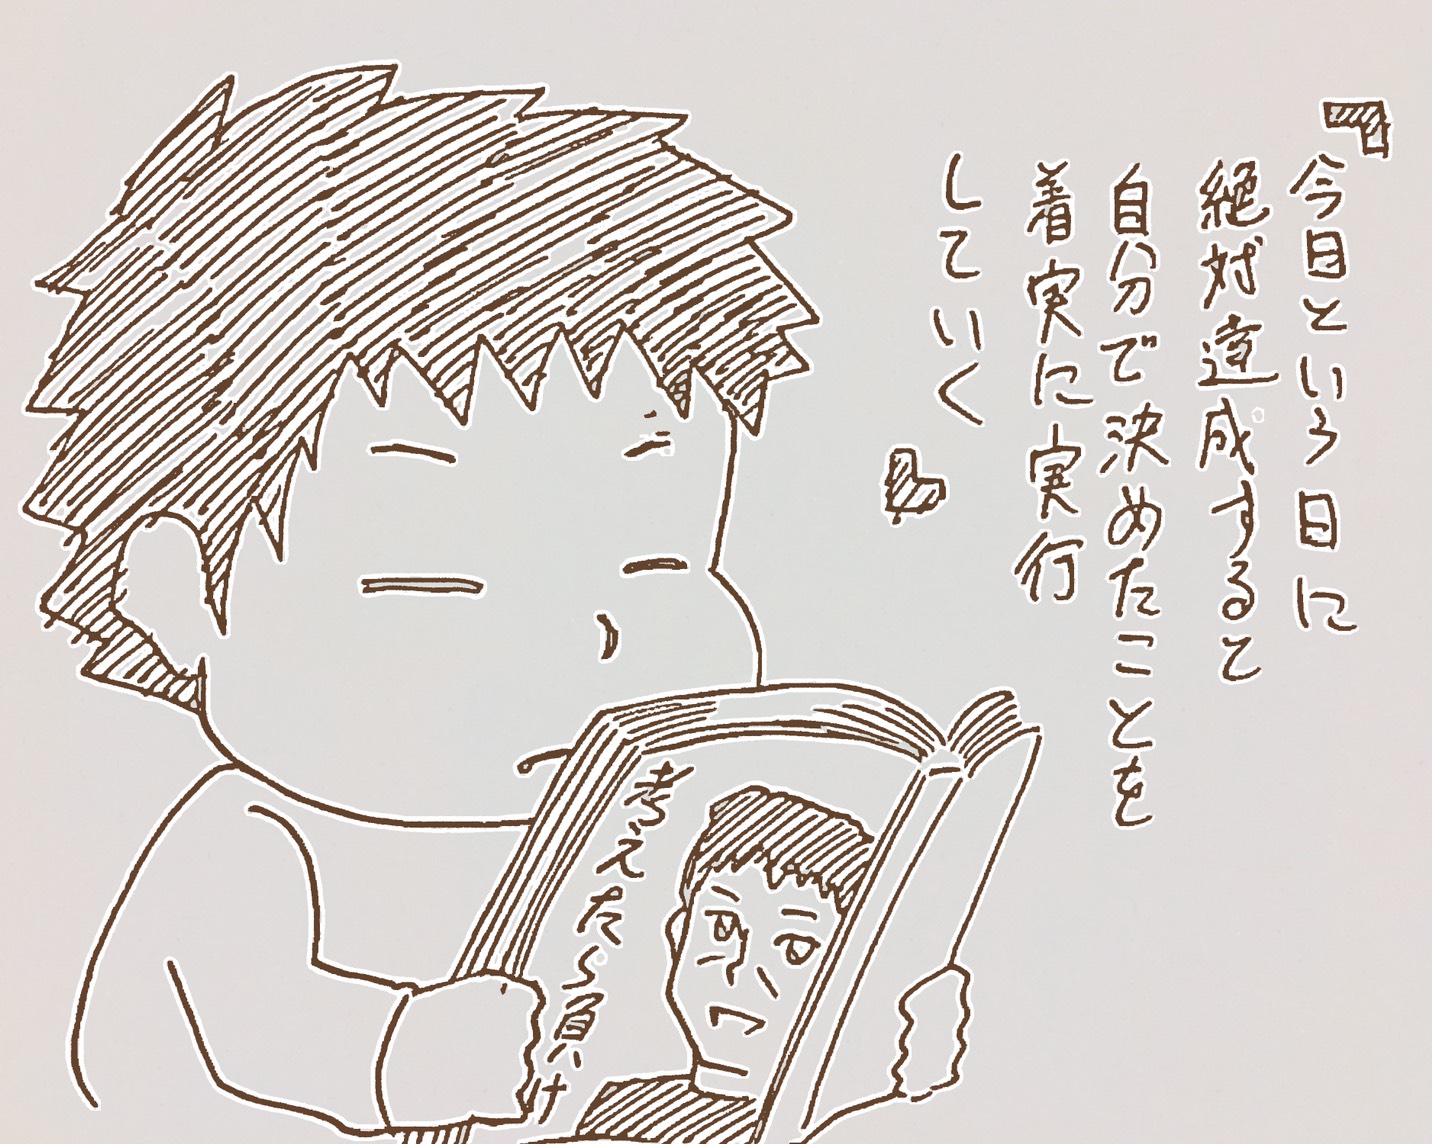 『今日という日に
絶対達成すると
自分で決めたことを
着実に実行
していく
』
考えたら負け